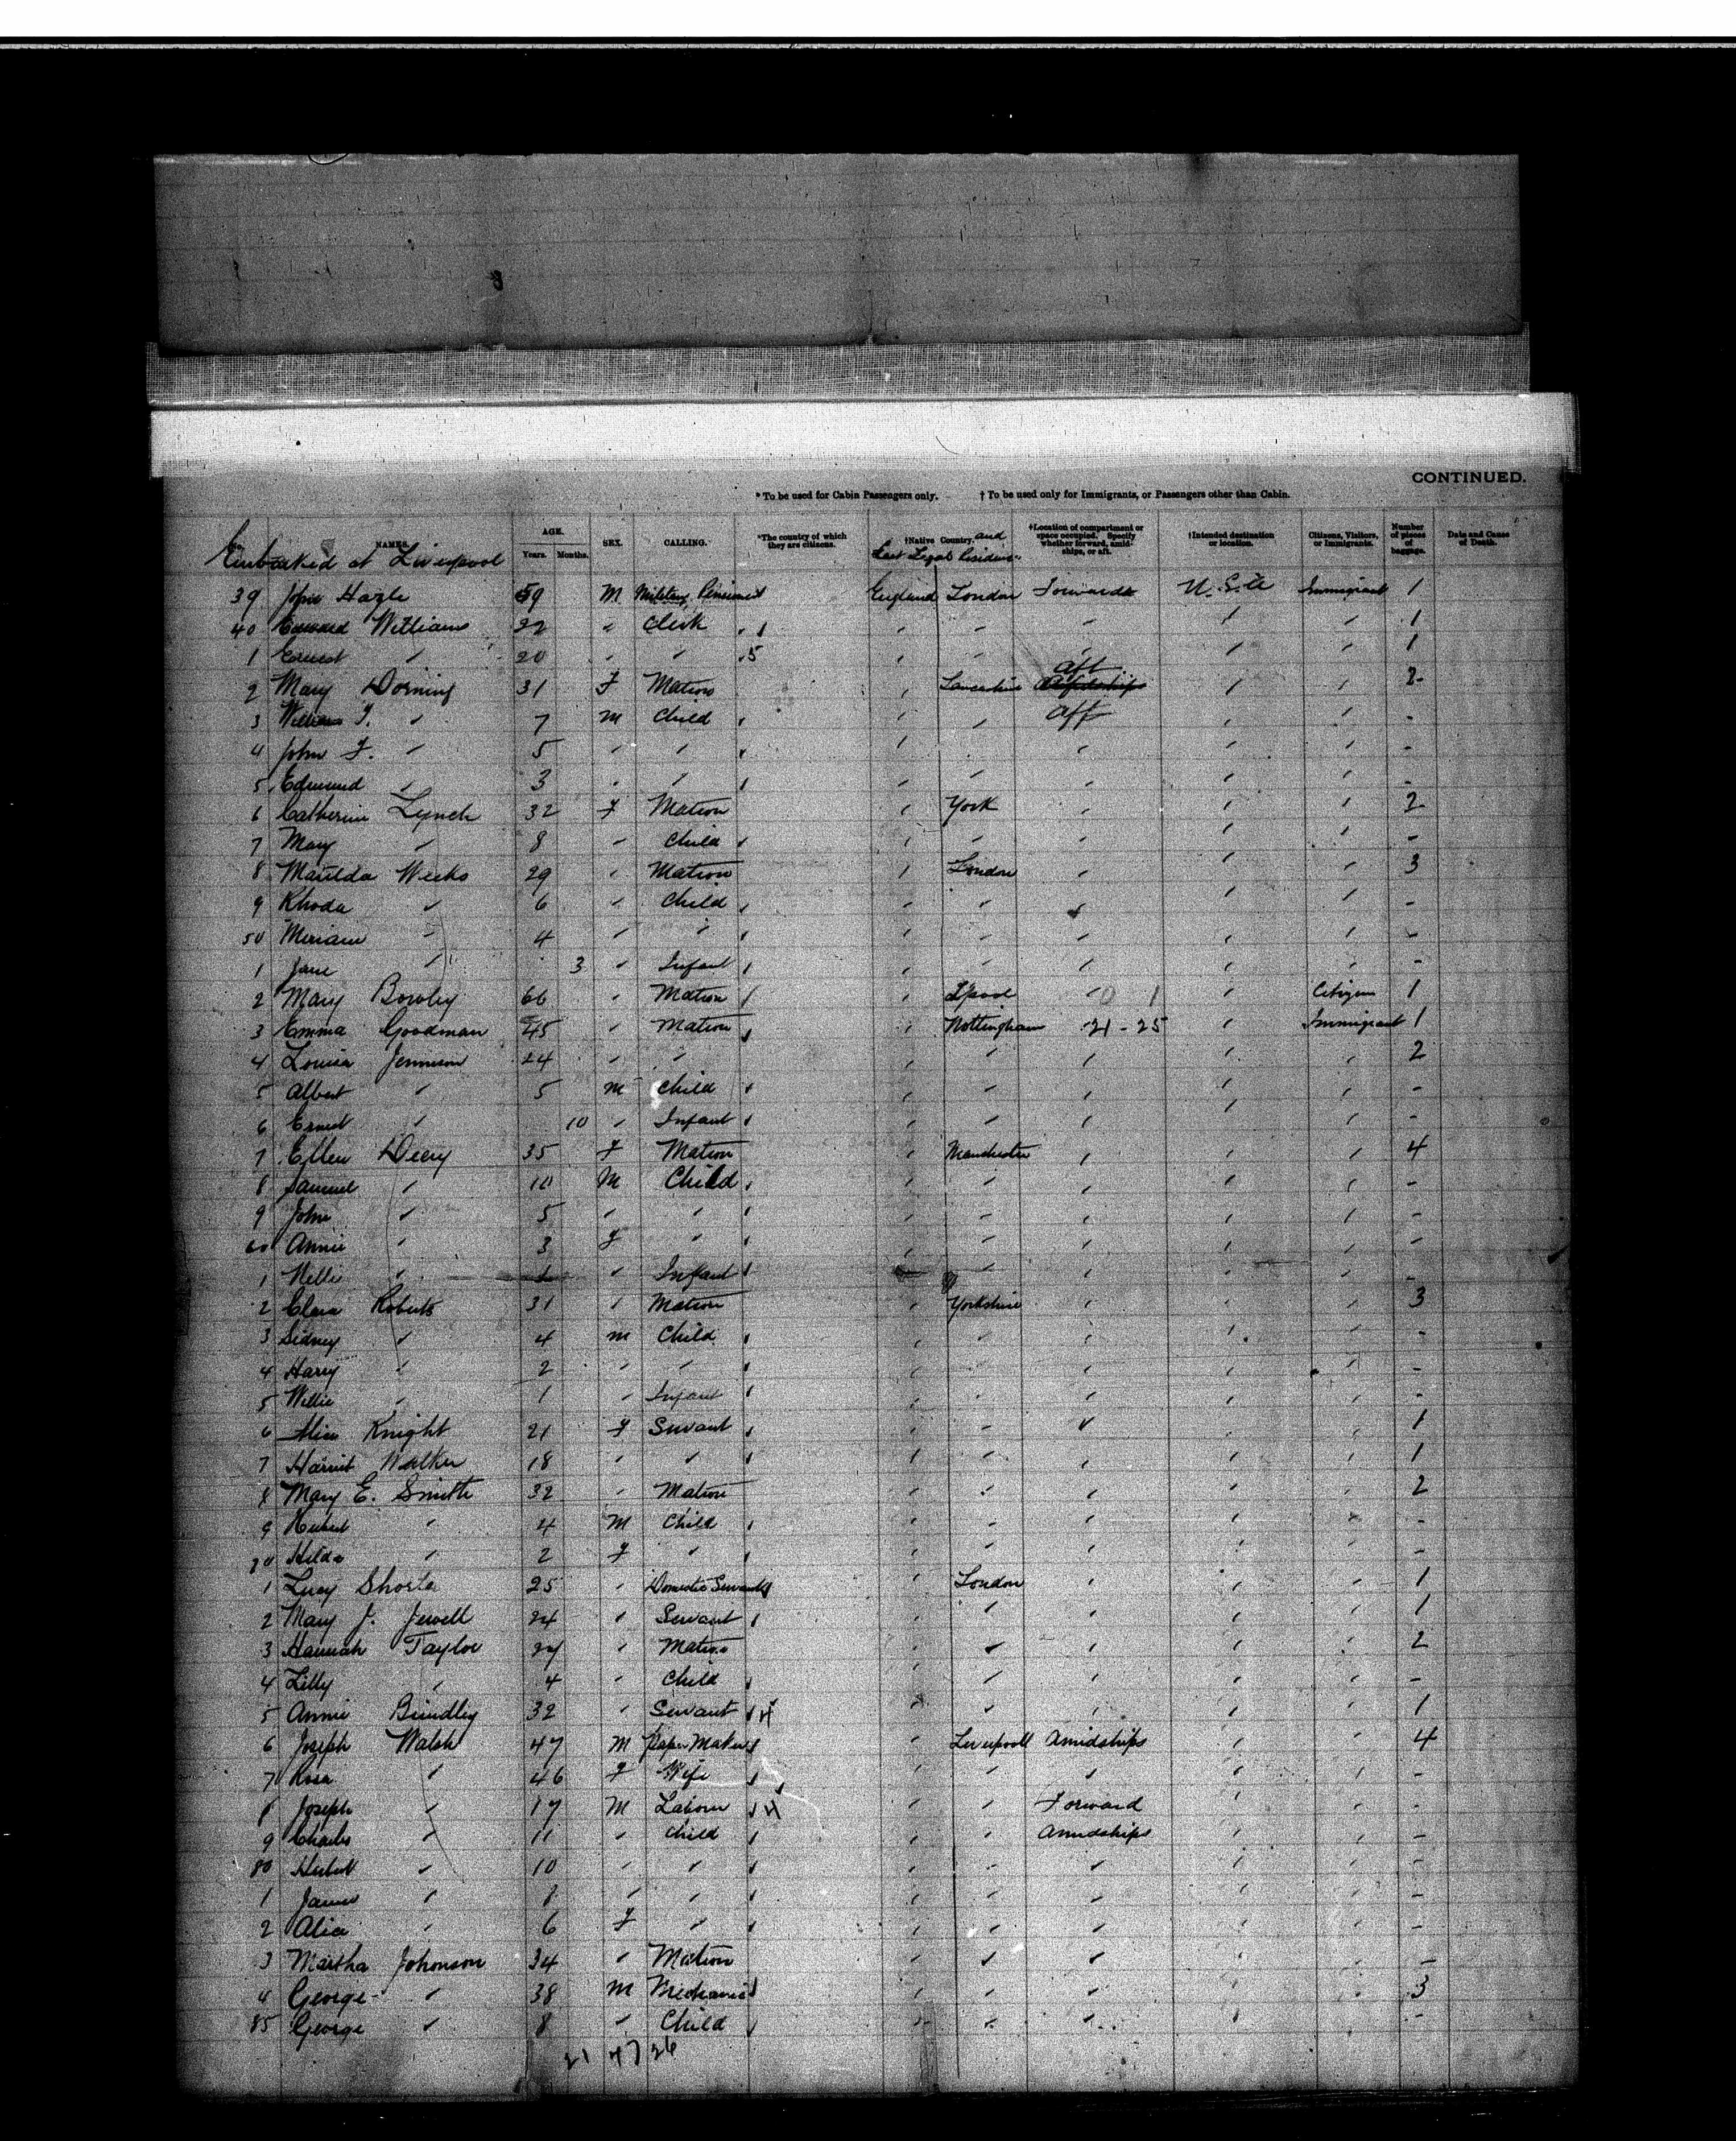 CONTINUED.
* To be used for Cabin Passengers only. † To be used only for Immigrants, or Passengers other than Cabin.
NAMES. AGE. Years. Months. SEX. CALLING. *The country of which they are citizens. †Native Country, and Last Legal Residence †Location of compartment or space occupied. Specify whether forward, amidships, or aft. †Intended destination or location. Citizens, Visitors, or Immigrants. Number of pieces of baggage. Date and Cause of Death.
Embarked at Liverpool
39 John Hazle 59 M Military Pensioner England London Forwards U.S.A Immigrant 1
40 Edward Williams 22 " Clerk " " " " " 1
1 Ernest " 20 " " 5 " " " " " 1
2 Mary Dorning 31 F Matron " Lancashire aft " " 2
3 William T. " 7 M Child " " aft " " -
4 John F. " 5 " " " " " " " -
5 Edmund " 3 " " " " " " " -
6 Catherine Lynch 32 F Matron " York " " " 2
7 Mary " 8 " Child " " " " " -
8 Matilda Weeks 29 " Matron " London " " " 3
9 Rhoda " 6 " Child " " " " " -
50 Miriam " 4 " " " " " " " -
1 Jane " 3 " Infant " " " " " -
2 Mary Bowley 66 " Matron " L'pool " " Citizen 1
3 Emma Goodman 45 " Matron " Nottingham 21-25 " Immigrant 1
4 Louisa Jennison 24 " " " " " " " 2
5 Albert " 5 M Child " " " " " -
6 Ernest " 10 " Infant " " " " " -
7 Ellen Deery 35 F Matron " Manchester " " " 4
8 Samuel " 10 M Child " " " " " -
9 John " 5 " " " " " " " -
60 Annie " 3 F " " " " " " -
1 Nelli " " Infant " " " " -
2 Clara Roberts 31 " Matron " Yorkshire " " " 3
3 Sidney " 4 M Child " " " " " -
4 Harry " 2 " " " " " " " -
5 Willie " 1 " Infant " " " " " -
6 Alice Knight 21 F Servant " " " " " 1
7 Harriet Walker 18 " " " " " " " 1
8 Mary E. Smith 32 " Matron " " " " " 2
9 Hubert " 4 M Child " " " " " -
70 Hilda " 2 F " " " " " " -
1 Lucy 25 " Domestic Servant " London " " " 1
2 Mary J. Jewell 24 " Servant " " " " " 1
3 Hannah Taylor 27 " Matron " " " " " 2
4 Lilly " 4 " Child " " " " " -
5 Annie Brindley 32 " Servant 4 " " " " " 1
6 Joseph Walsh 47 M Paper Maker " Liverpool Amidships " " 4
7 Rosa " 46 F Wife " " " " " -
8 Joseph " 17 M Labour 4 " " Forward " " -
9 Charles " 11 " Child " " Amidships " " -
80 Hubert " 10 " " " " " " " -
1 James " 8 " " " " " " " -
2 Alice " 6 F " " " " " " -
3 Martha Johonson 34 " Matron " " " " " -
4 George " 38 M Mechanic " " " " " 3
85 George " 8 " Child " " " " " -
21 47 26